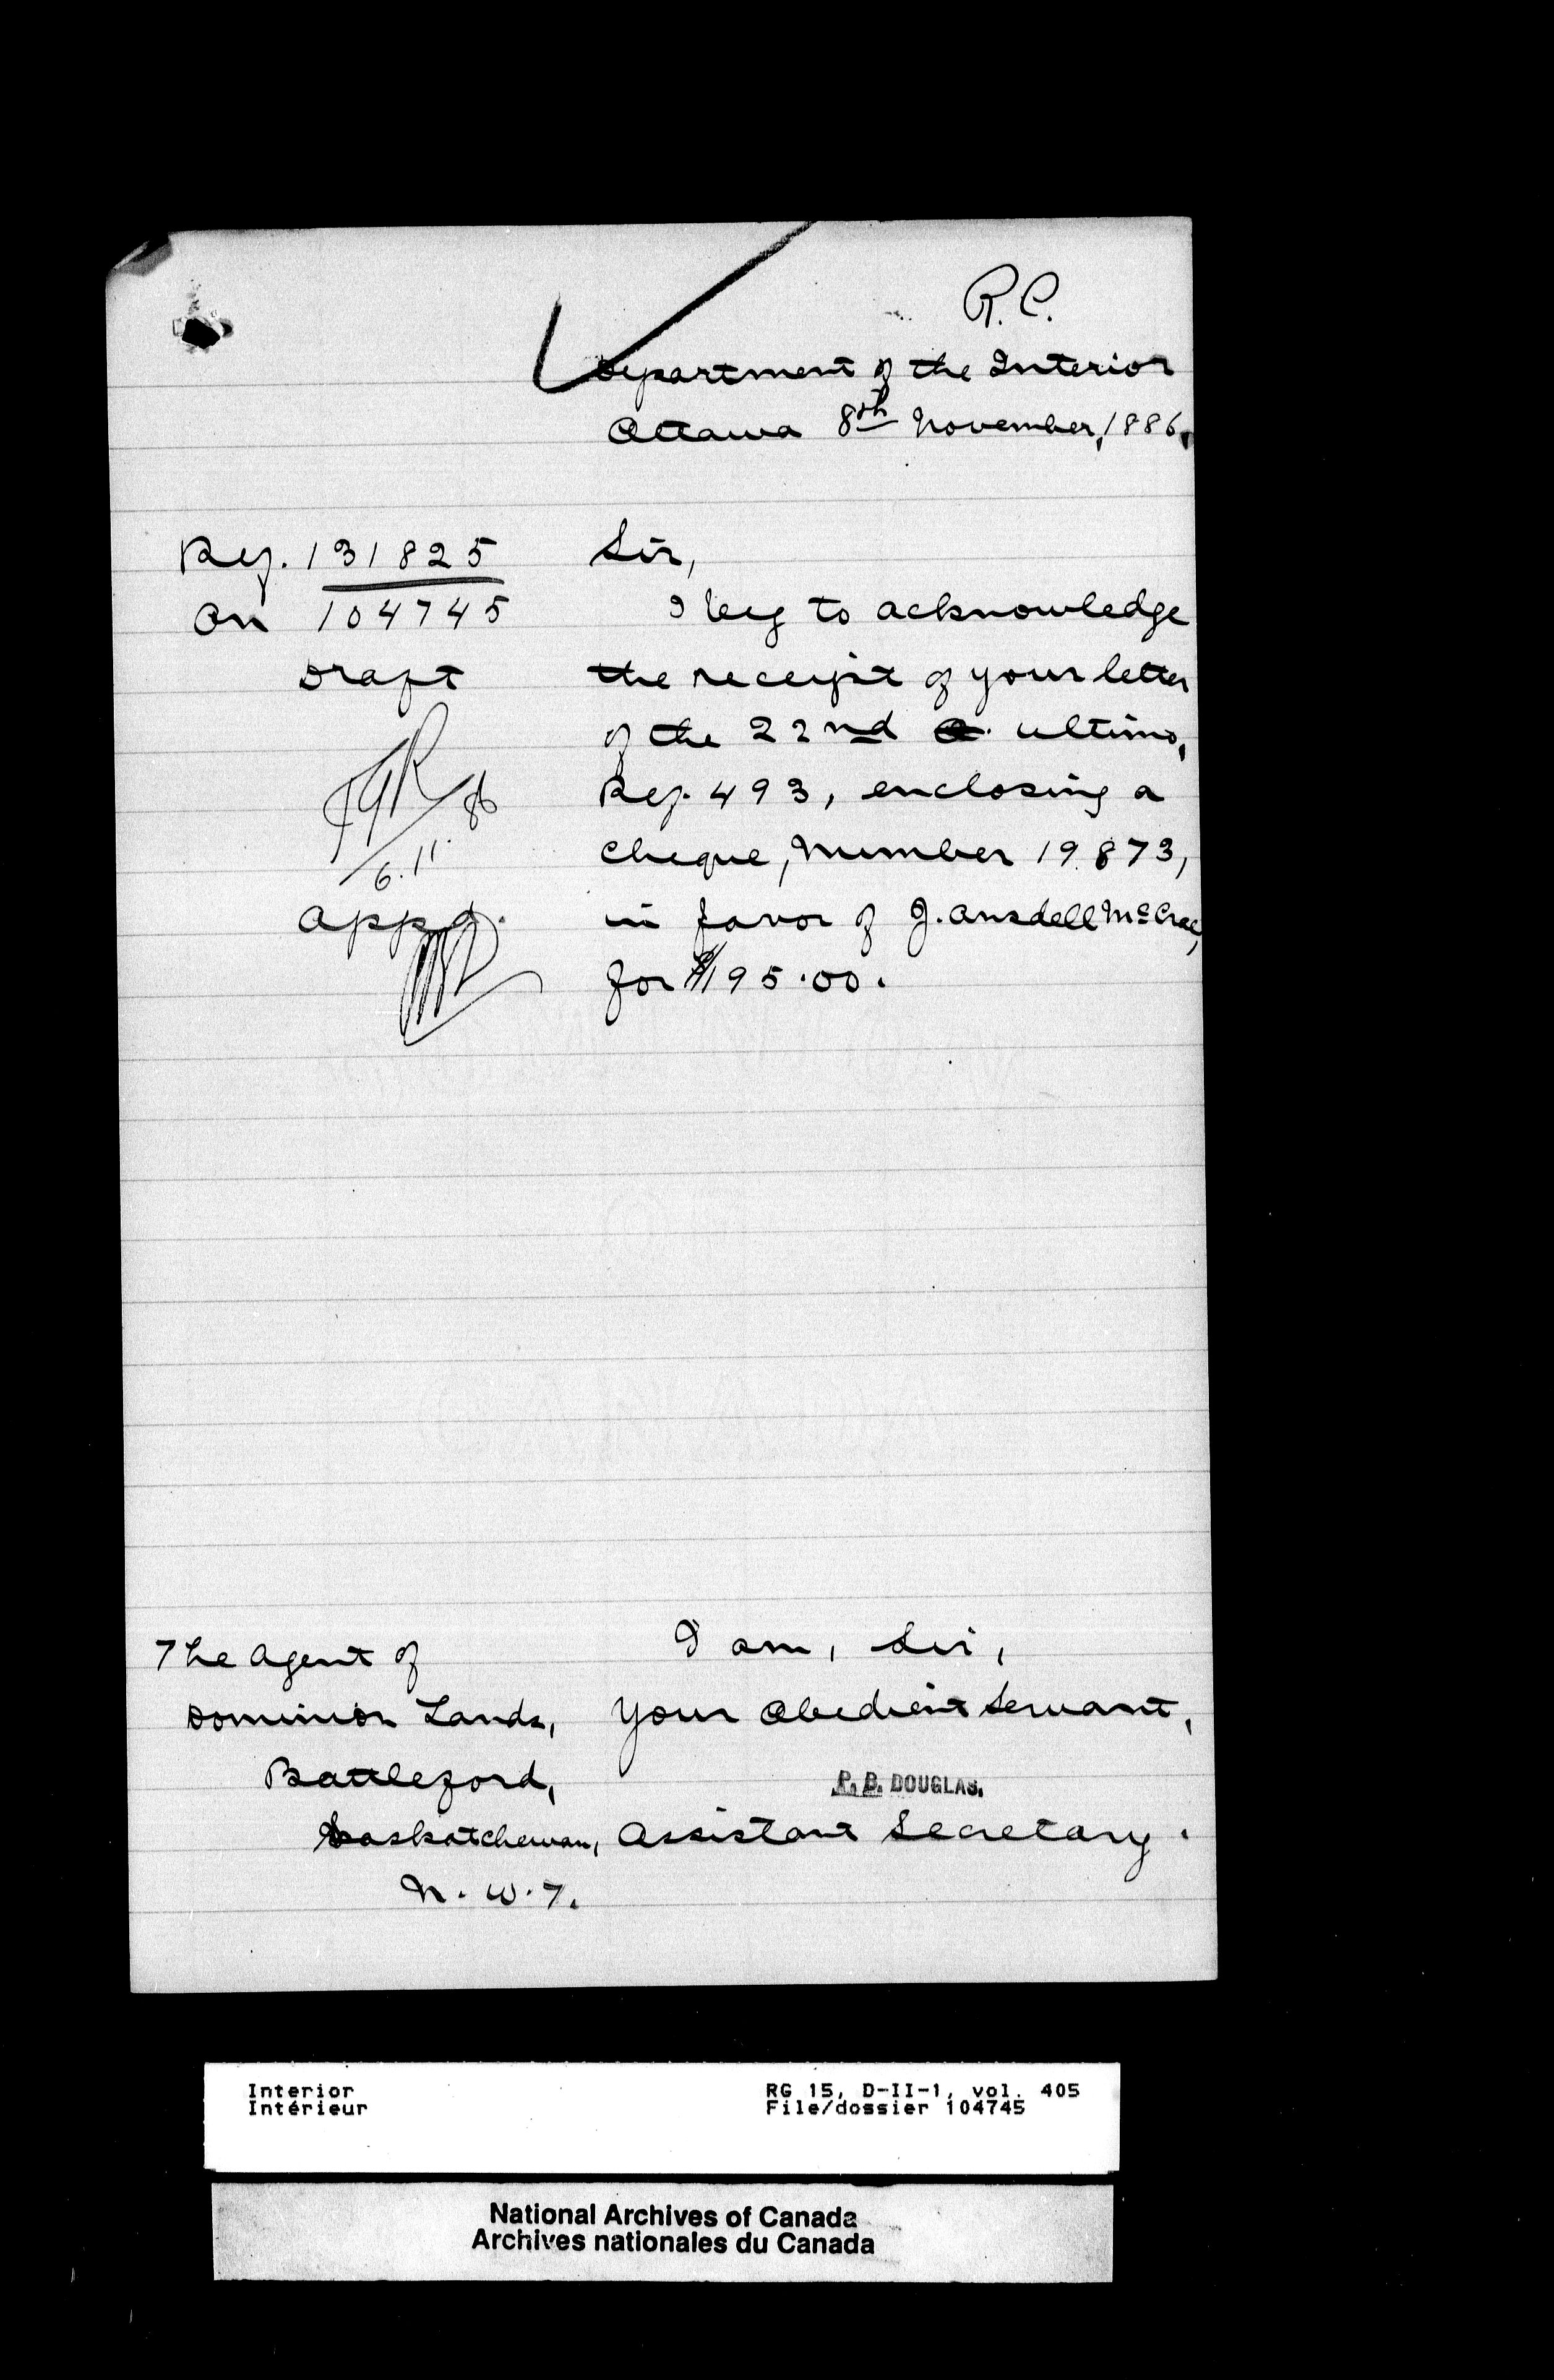 R.C.
Department of the Interior
Ottawa 8th November, 1886.
Ref. 131825
On 104745
Draft
6.11.86
Appd.
Sir,
I beg to acknowledge
the receipt of your letter
of the 22nd ultimo,
Ref. 493, enclosing a
cheque, Number 19873,
in favor of J. Ansdell McCrae,
for $195.00.
I am, Sir,
Your Obedient Servant,
P. B. DOUGLAS.
Assistant Secretary.
The Agent of
Dominion Lands,
Battleford,
Saskatchewan,
N.W.T.
Interior
Intérieur
RG 15, D-II-1, vol. 405
File/dossier 104745
National Archives of Canada
Archives nationales du Canada